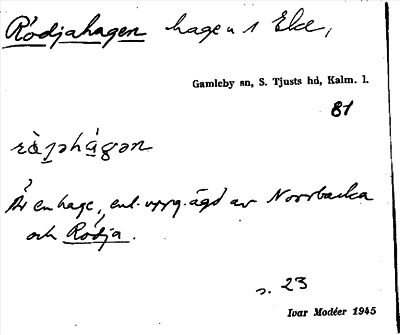 Rödjahagen hage u 1 Eke,
Gamleby sn, S. Tjusts hd, Kalm. l.
81
Är en hage, enl. uppg. ägd av Norrbacka
och Rödja.
s. 23
Ivar Modéer 1945